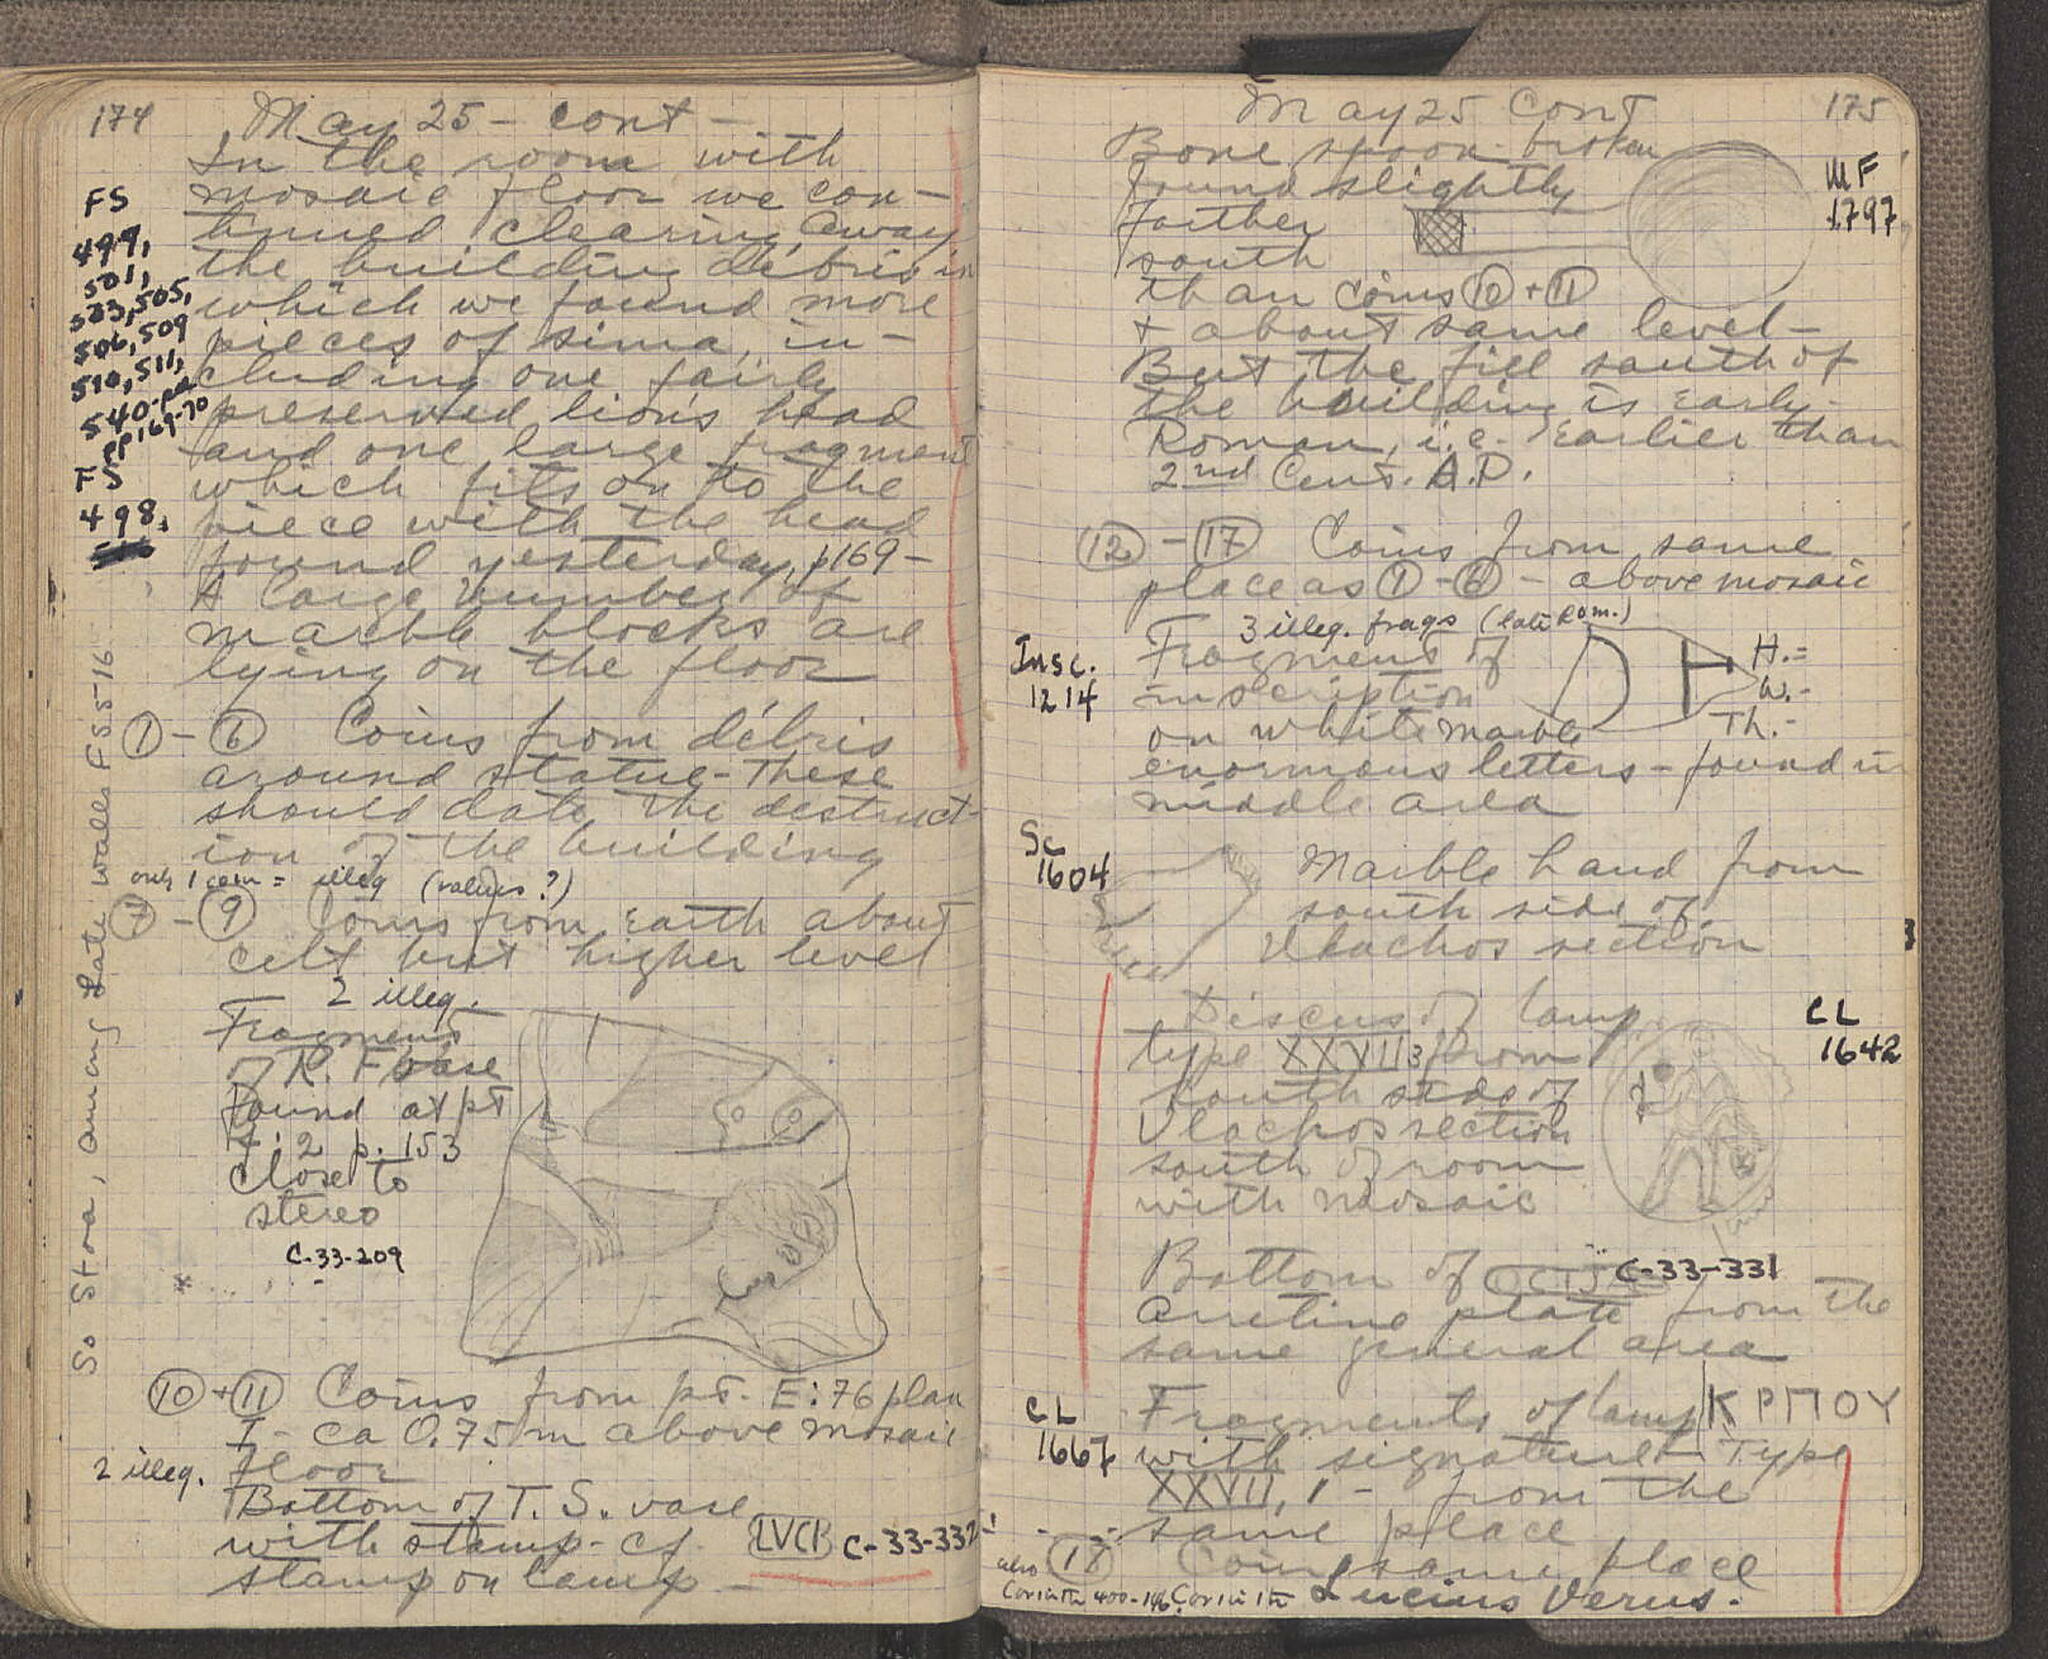 174
May 25 - cont -
In the room with
mosaic floor we con-
tinued clearing away
the building débris in
which we found more
pieces of sima, in-
cluding one fairly
preserved lion's head
and one large fragment
which fits on to the
piece with the head
found yesterday, p169 -
A large number of
marble blocks are
lying on the floor
FS
499,
501,
533, 505,
506, 509
510, 511,
540
pp 169-70
FS
498,
So Stoa, among Late walls FS 516
① - ⑥ Coins from débris
around statue - These
should date the destruct-
ion of the building
only 1 coin = illeg
⑦ - ⑨ Coins from earth about
celt but higher level
2 illeg.
Fragment
of R. F vase
found at pt
4:2 p. 153
close to
stereo
C-33-209
⑩ + ⑪ Coins from pt. E:76 plan
I - ca 0.75 m above mosaic
floor
2 illeg.
Bottom of T. S. vase
with stamp - cf.
stamp on lamp -
LVCI
C-33-332
May 25 Cont
175
Bone spoon - broken
found slightly
farther
south
than coins ⑩ + ⑪
+ about same level -
But the fill south of
the building is early-
Roman, i.e. earlier than
2nd Cent. A.D.
MF
1797
⑫ - ⑰ Coins from same
place as ① - ⑥ - above mosaic
3 illeg. frags (late Rom.)
Insc.
1214
Fragment of
inscription
on white marble
enormous letters - found in
middle area
H. =
W. -
Th. -
Sc
1604
Marble hand from
south side of
Vlachos section
Discus of lamp
type XXVII 3 from
south side of
Vlachos section
south of room
with mosaic
CL
1642
Bottom of
C-33-331
Arretine plate from the
same general area
CL
1667
Fragments of lamp ΚΡΠΟΥ
with signature - Type
XXVII, 1 - from the
same place
⑱ Coin same place
also
Corinth 400-146 Corinth Lucius Verus.